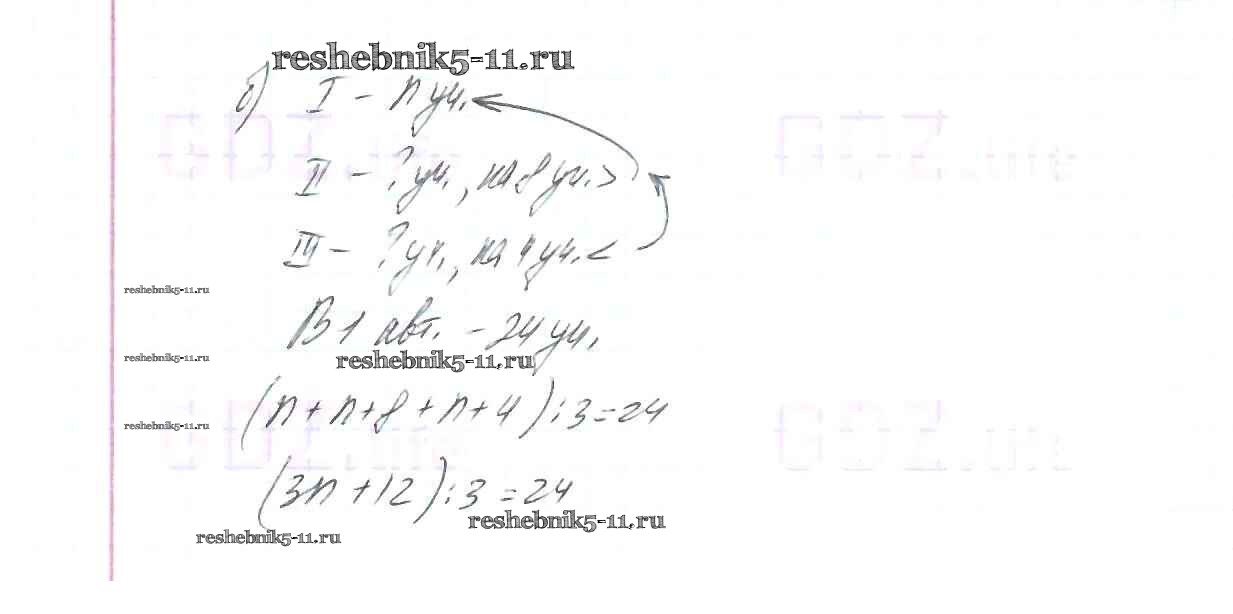 reshebnik5-11.ru
б) I - n уч.
II - ? уч., на 8 уч. >
III - ? уч., на 4 уч. <
reshebnik5-11.ru
В 1 авт. - 24 уч.
reshebnik5-11.ru
reshebnik5-11.ru
(n + n + 8 + n + 4) : 3 = 24
reshebnik5-11.ru
(3n + 12) : 3 = 24
reshebnik5-11.ru
reshebnik5-11.ru